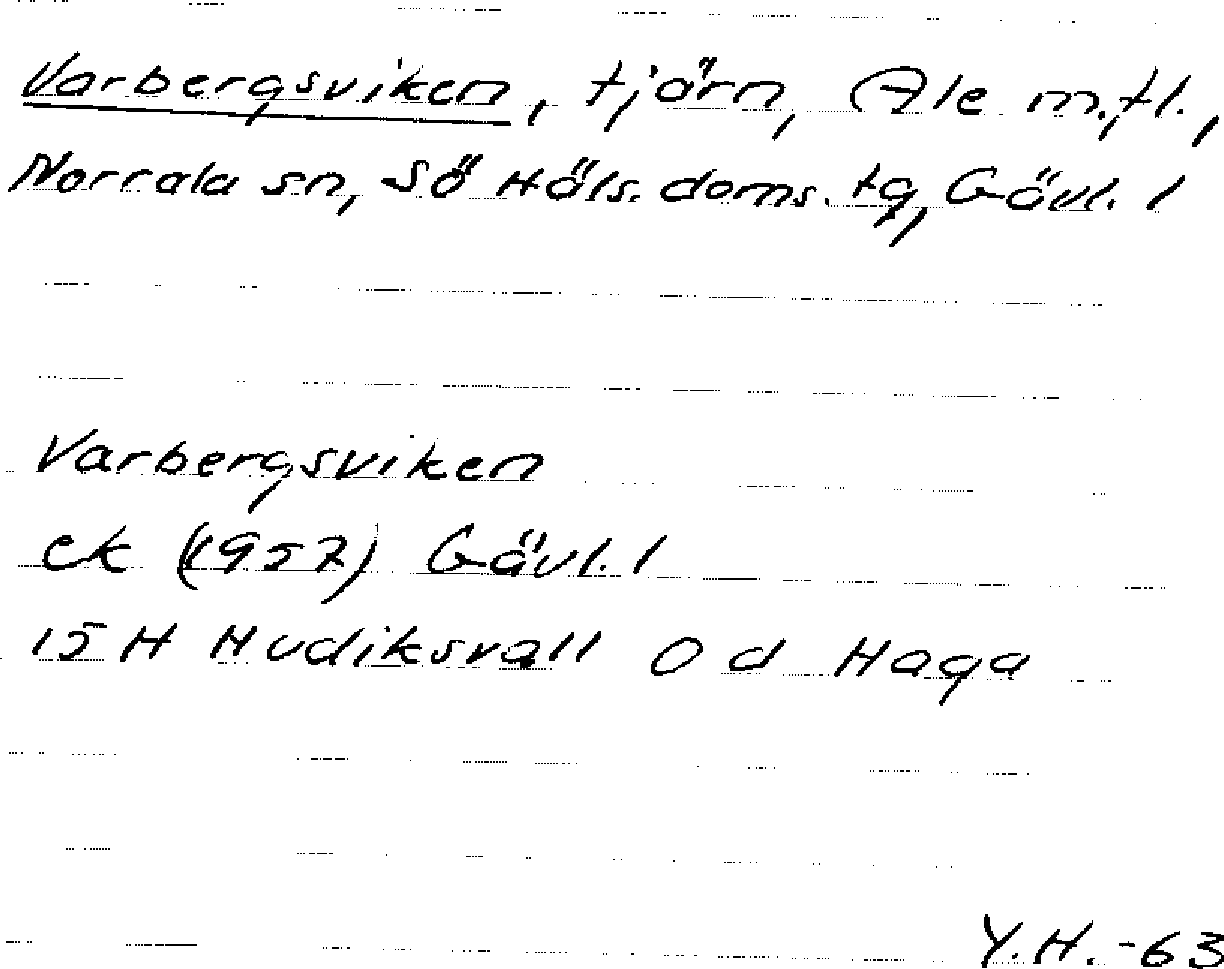 Varbergsviken, tjärn, Ale m.fl.,
Norrala sn, Sö Häls. doms. tg, Gävl. l
Varbergsviken
ek (1957) Gävl. l
15 H Hudiksvall 0 d Haga
Y.H. -63